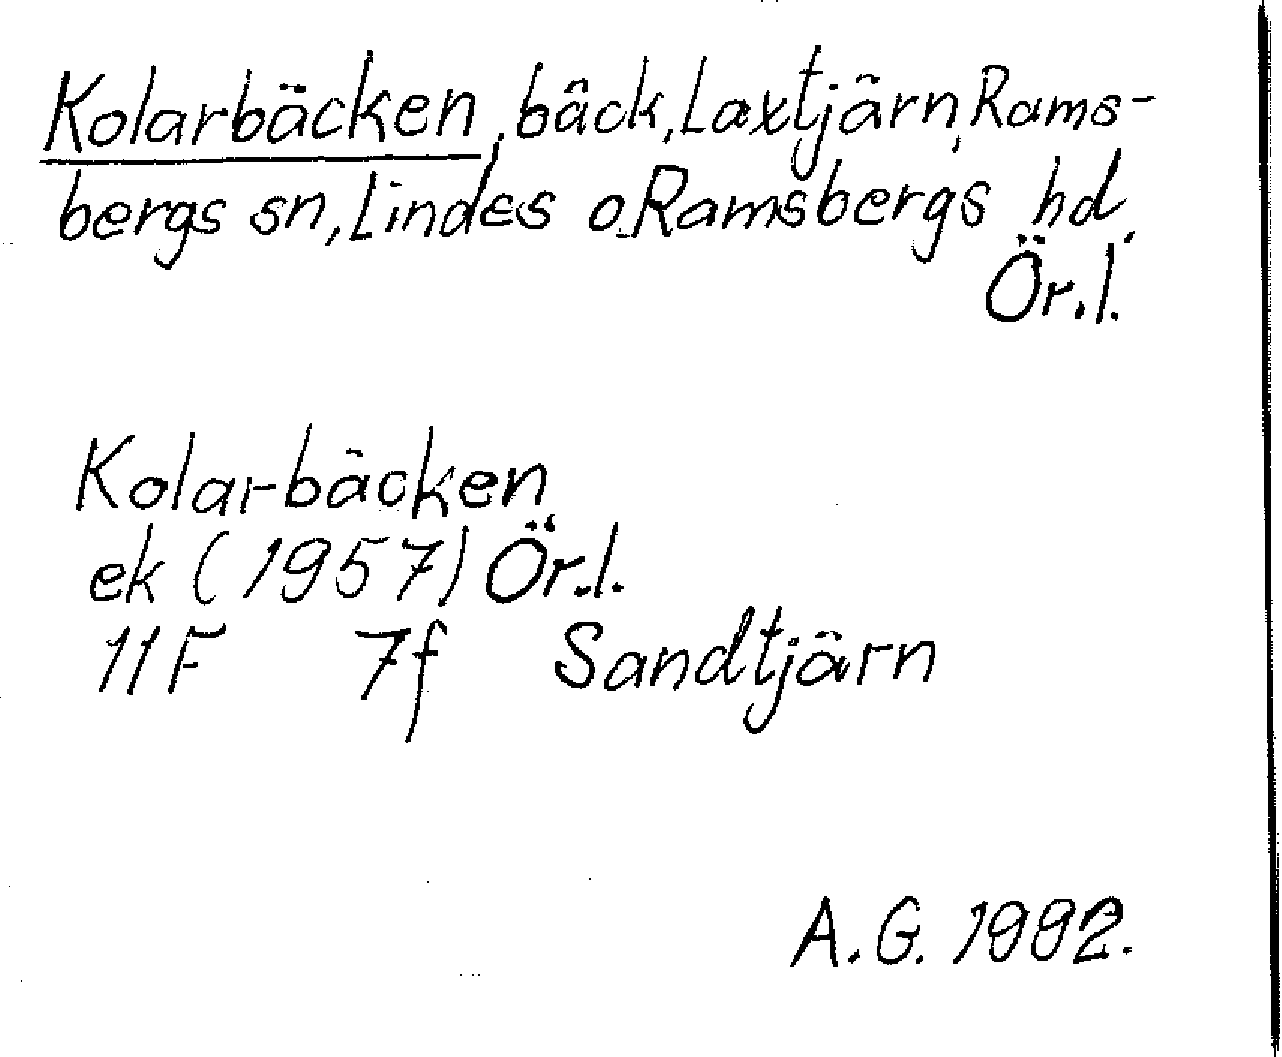 Kolarbäcken, bäck, Laxtjärn, Rams-
bergs sn, Lindes o. Ramsbergs hd,
Ör.l.
Kolarbäcken
ek (1957) Ör.l.
11F 7f Sandtjärn
A.G. 1992.